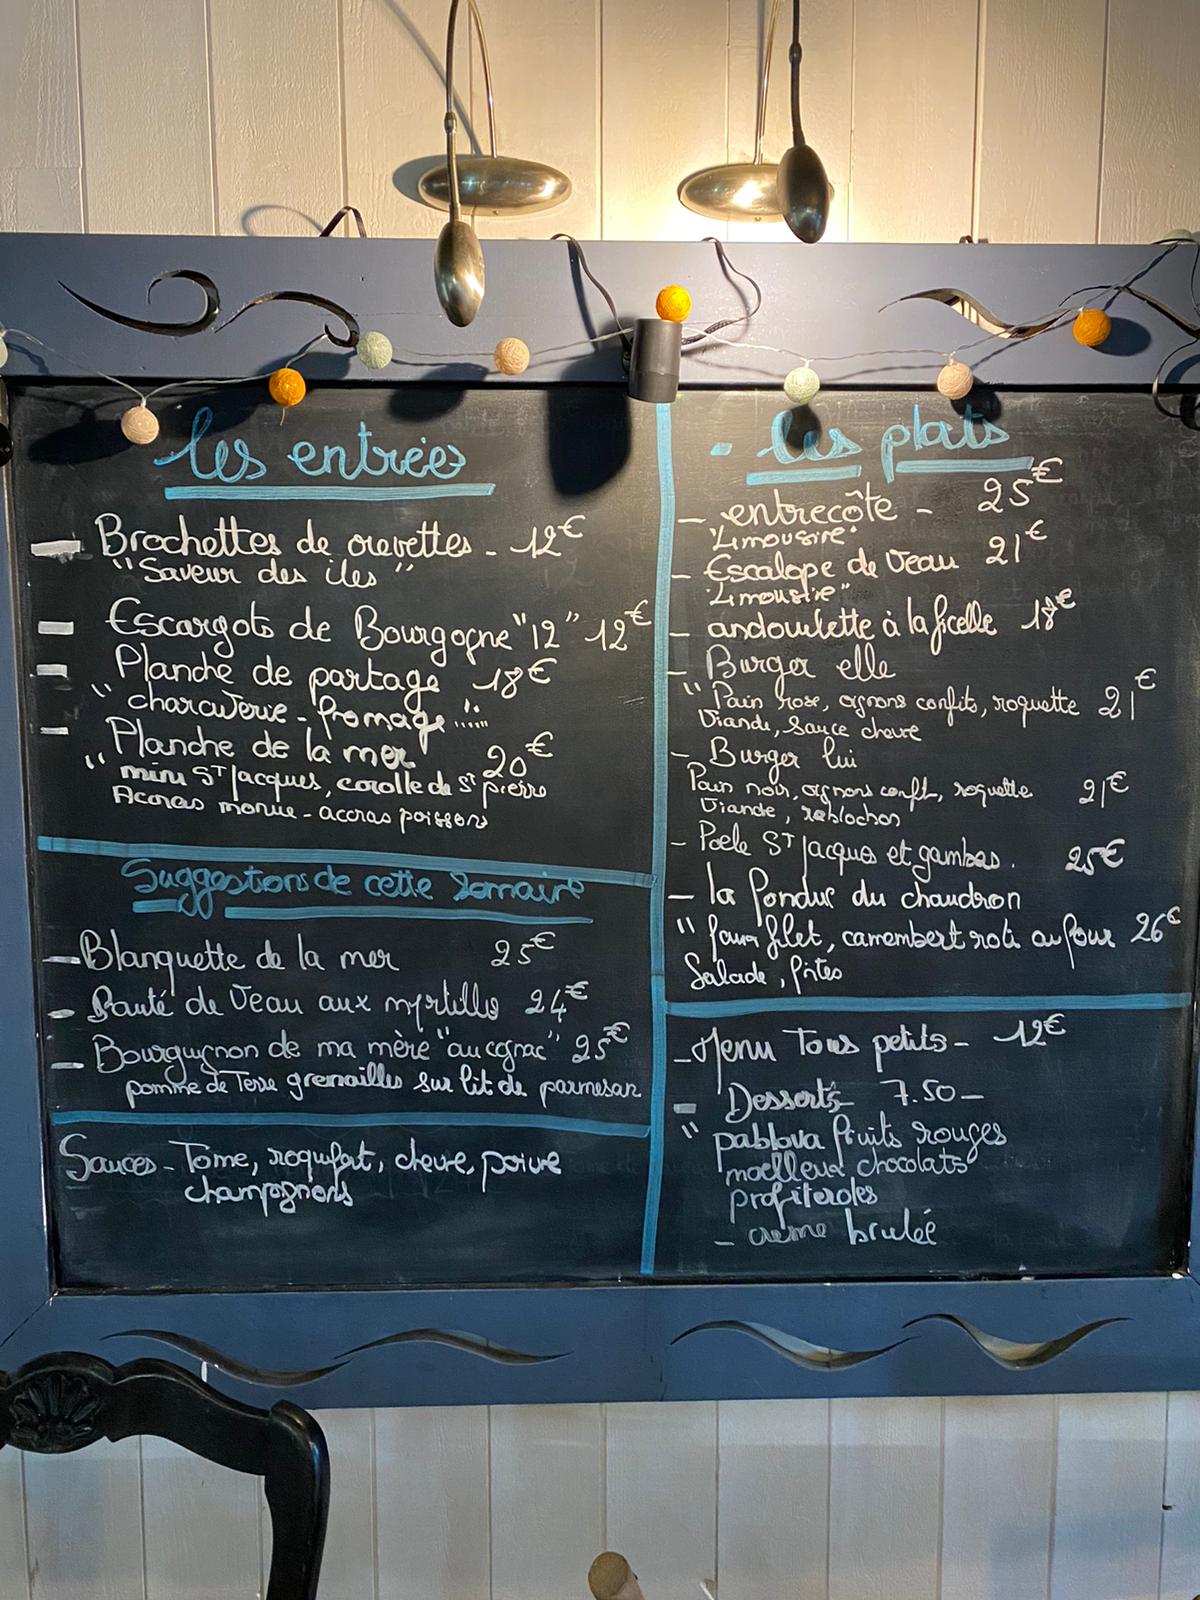 les entrées
- Brochettes de crevettes - 12€
"Saveur des iles"
- Escargots de Bourgogne "12" 12€
- Planche de partage 18€
"charcuterie - fromage"....
- Planche de la mer 20€
"mini St Jacques, corolle de St pierre
Accras morue - accras poissons
Suggestions de cette Semaine
- Blanquette de la mer 25€
- Sauté de Veau aux myrtilles 24€
- Bourguignon de ma mère "au cognac" 25€
pomme de Terre grenailles sur lit de parmesan
Sauces - Tome, roquefort, chevre, poivre
champignons
- les plats
- entrecôte - 25€
"Limousine"
- Escalope de Veau 21€
"Limousine"
- andouillette à la ficelle 18€
- Burger elle
"Pain rose, oignons confits, roquette 21€
Viande, Sauce chevre
- Burger lui
Pain noir, oignons confit, roquette 21€
Viande, reblochon
- Poele St Jacques et gambas. 25€
- la Fondue du chaudron
"faux filet, camembert roti au four 26€
Salade, frites
- Menu Tous petits - 12€
- Desserts 7.50 -
"pablova fruits rouges
moelleux chocolats
profiteroles
- creme brulée